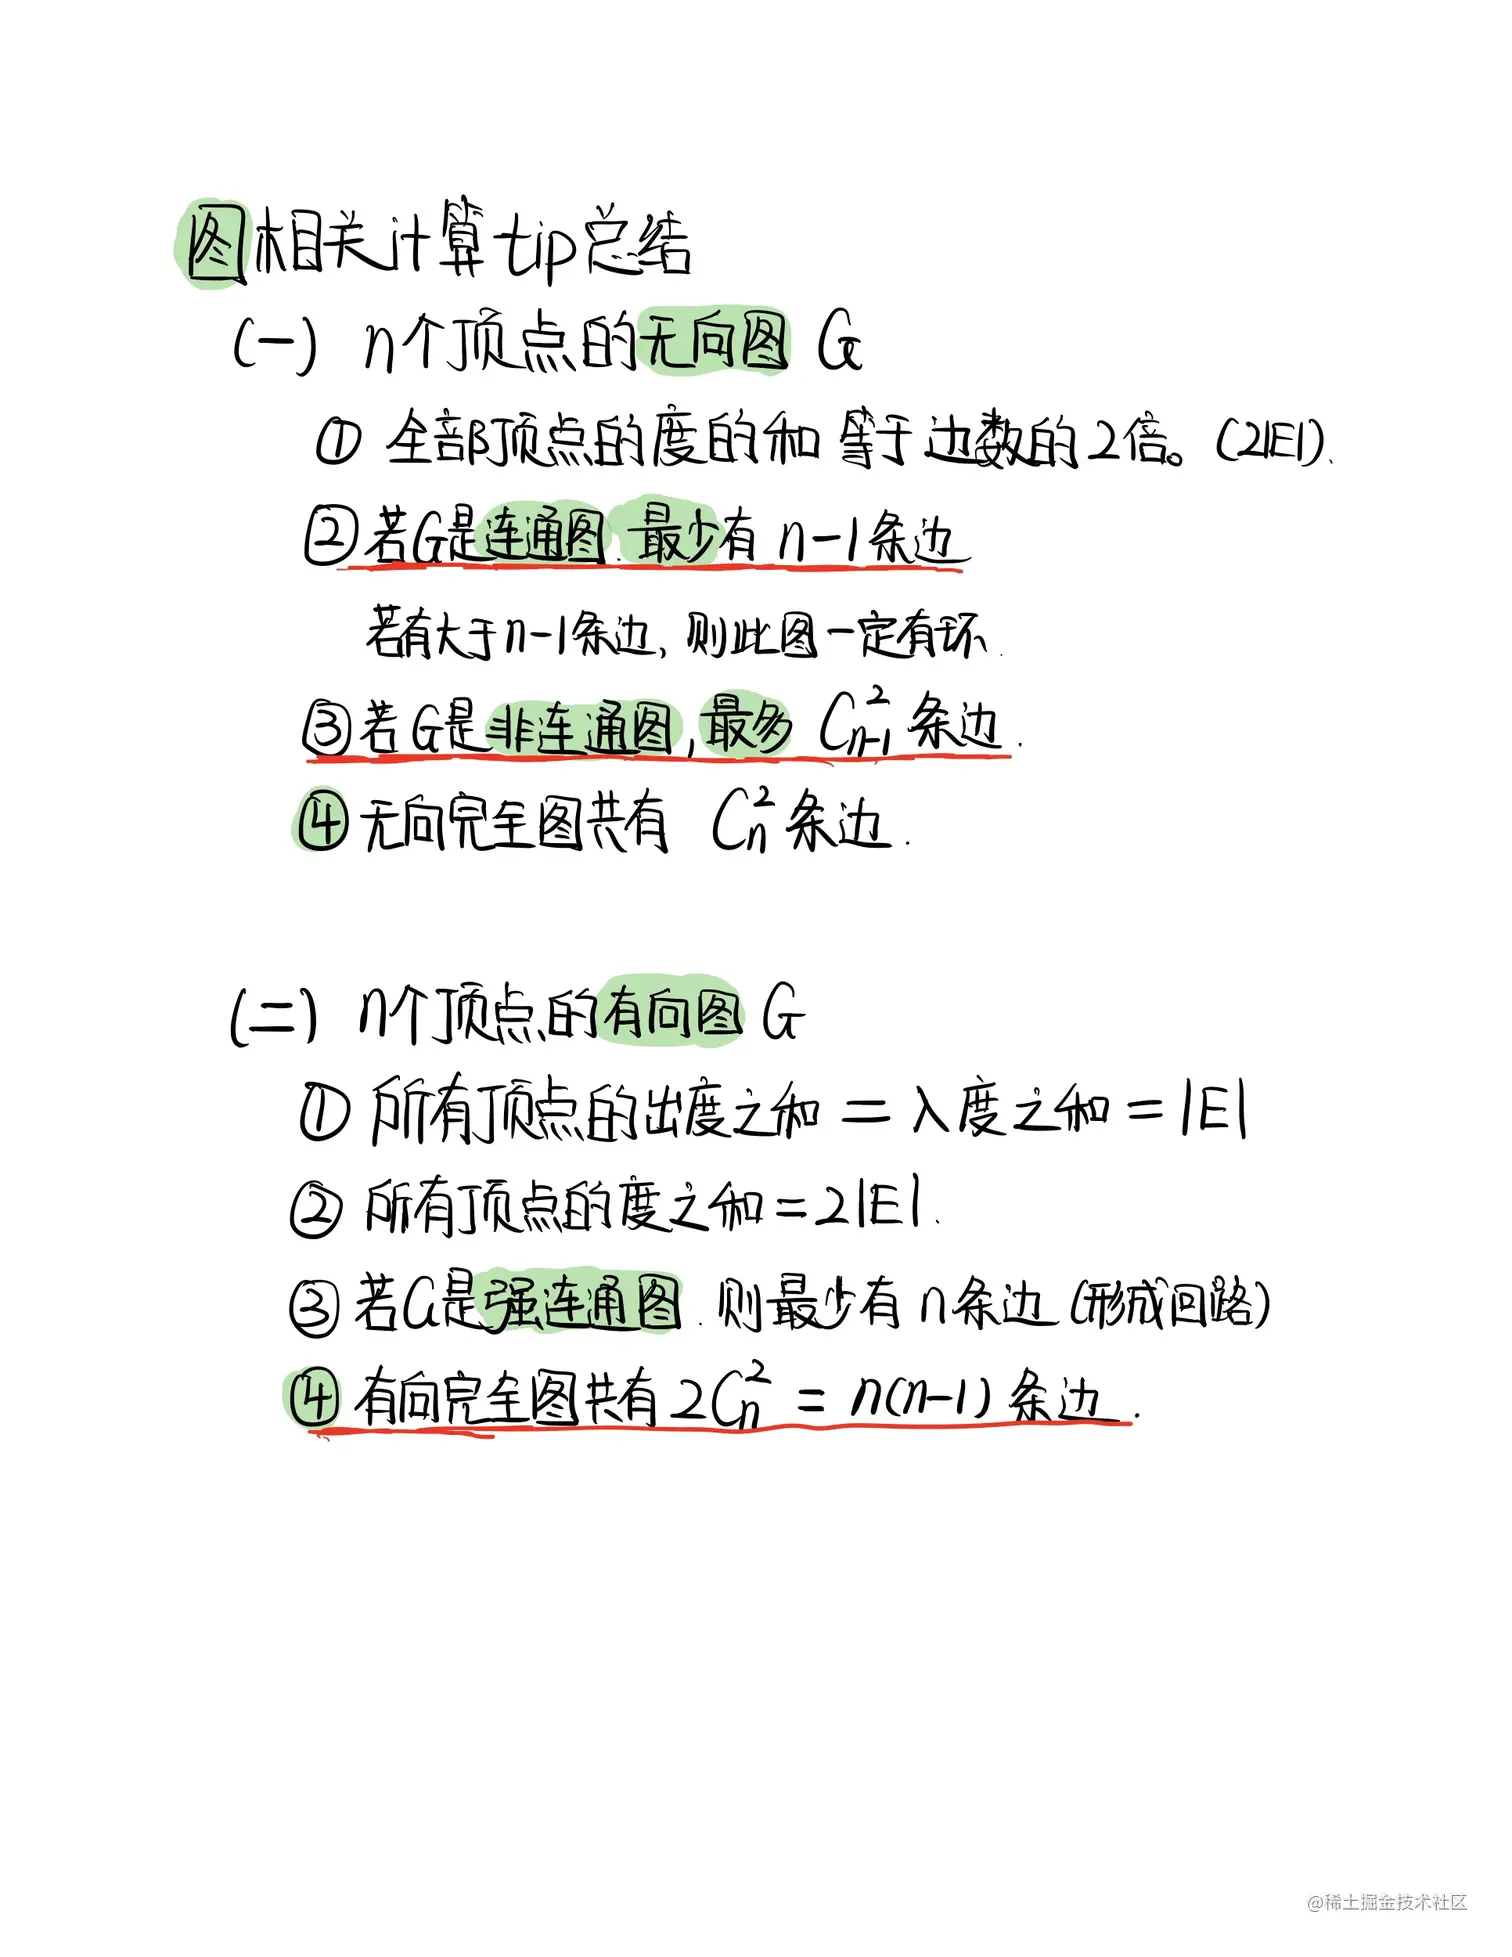 图相关计算tip总结
(一) n个顶点的无向图 G
① 全部顶点的度的和等于边数的2倍。(2|E|).
② 若G是连通图.最少有 n-1条边
若有大于n-1条边,则此图一定有环.
③ 若G是非连通图,最多 C²ₙ₋₁ 条边.
④ 无向完全图共有 C²ₙ 条边.
(二) n个顶点的有向图 G
① 所有顶点的出度之和 = 入度之和 = |E|
② 所有顶点的度之和 = 2|E|.
③ 若G是强连通图.则最少有 n条边(形成回路)
④ 有向完全图共有 2C²ₙ = n(n-1) 条边.
@稀土掘金技术社区